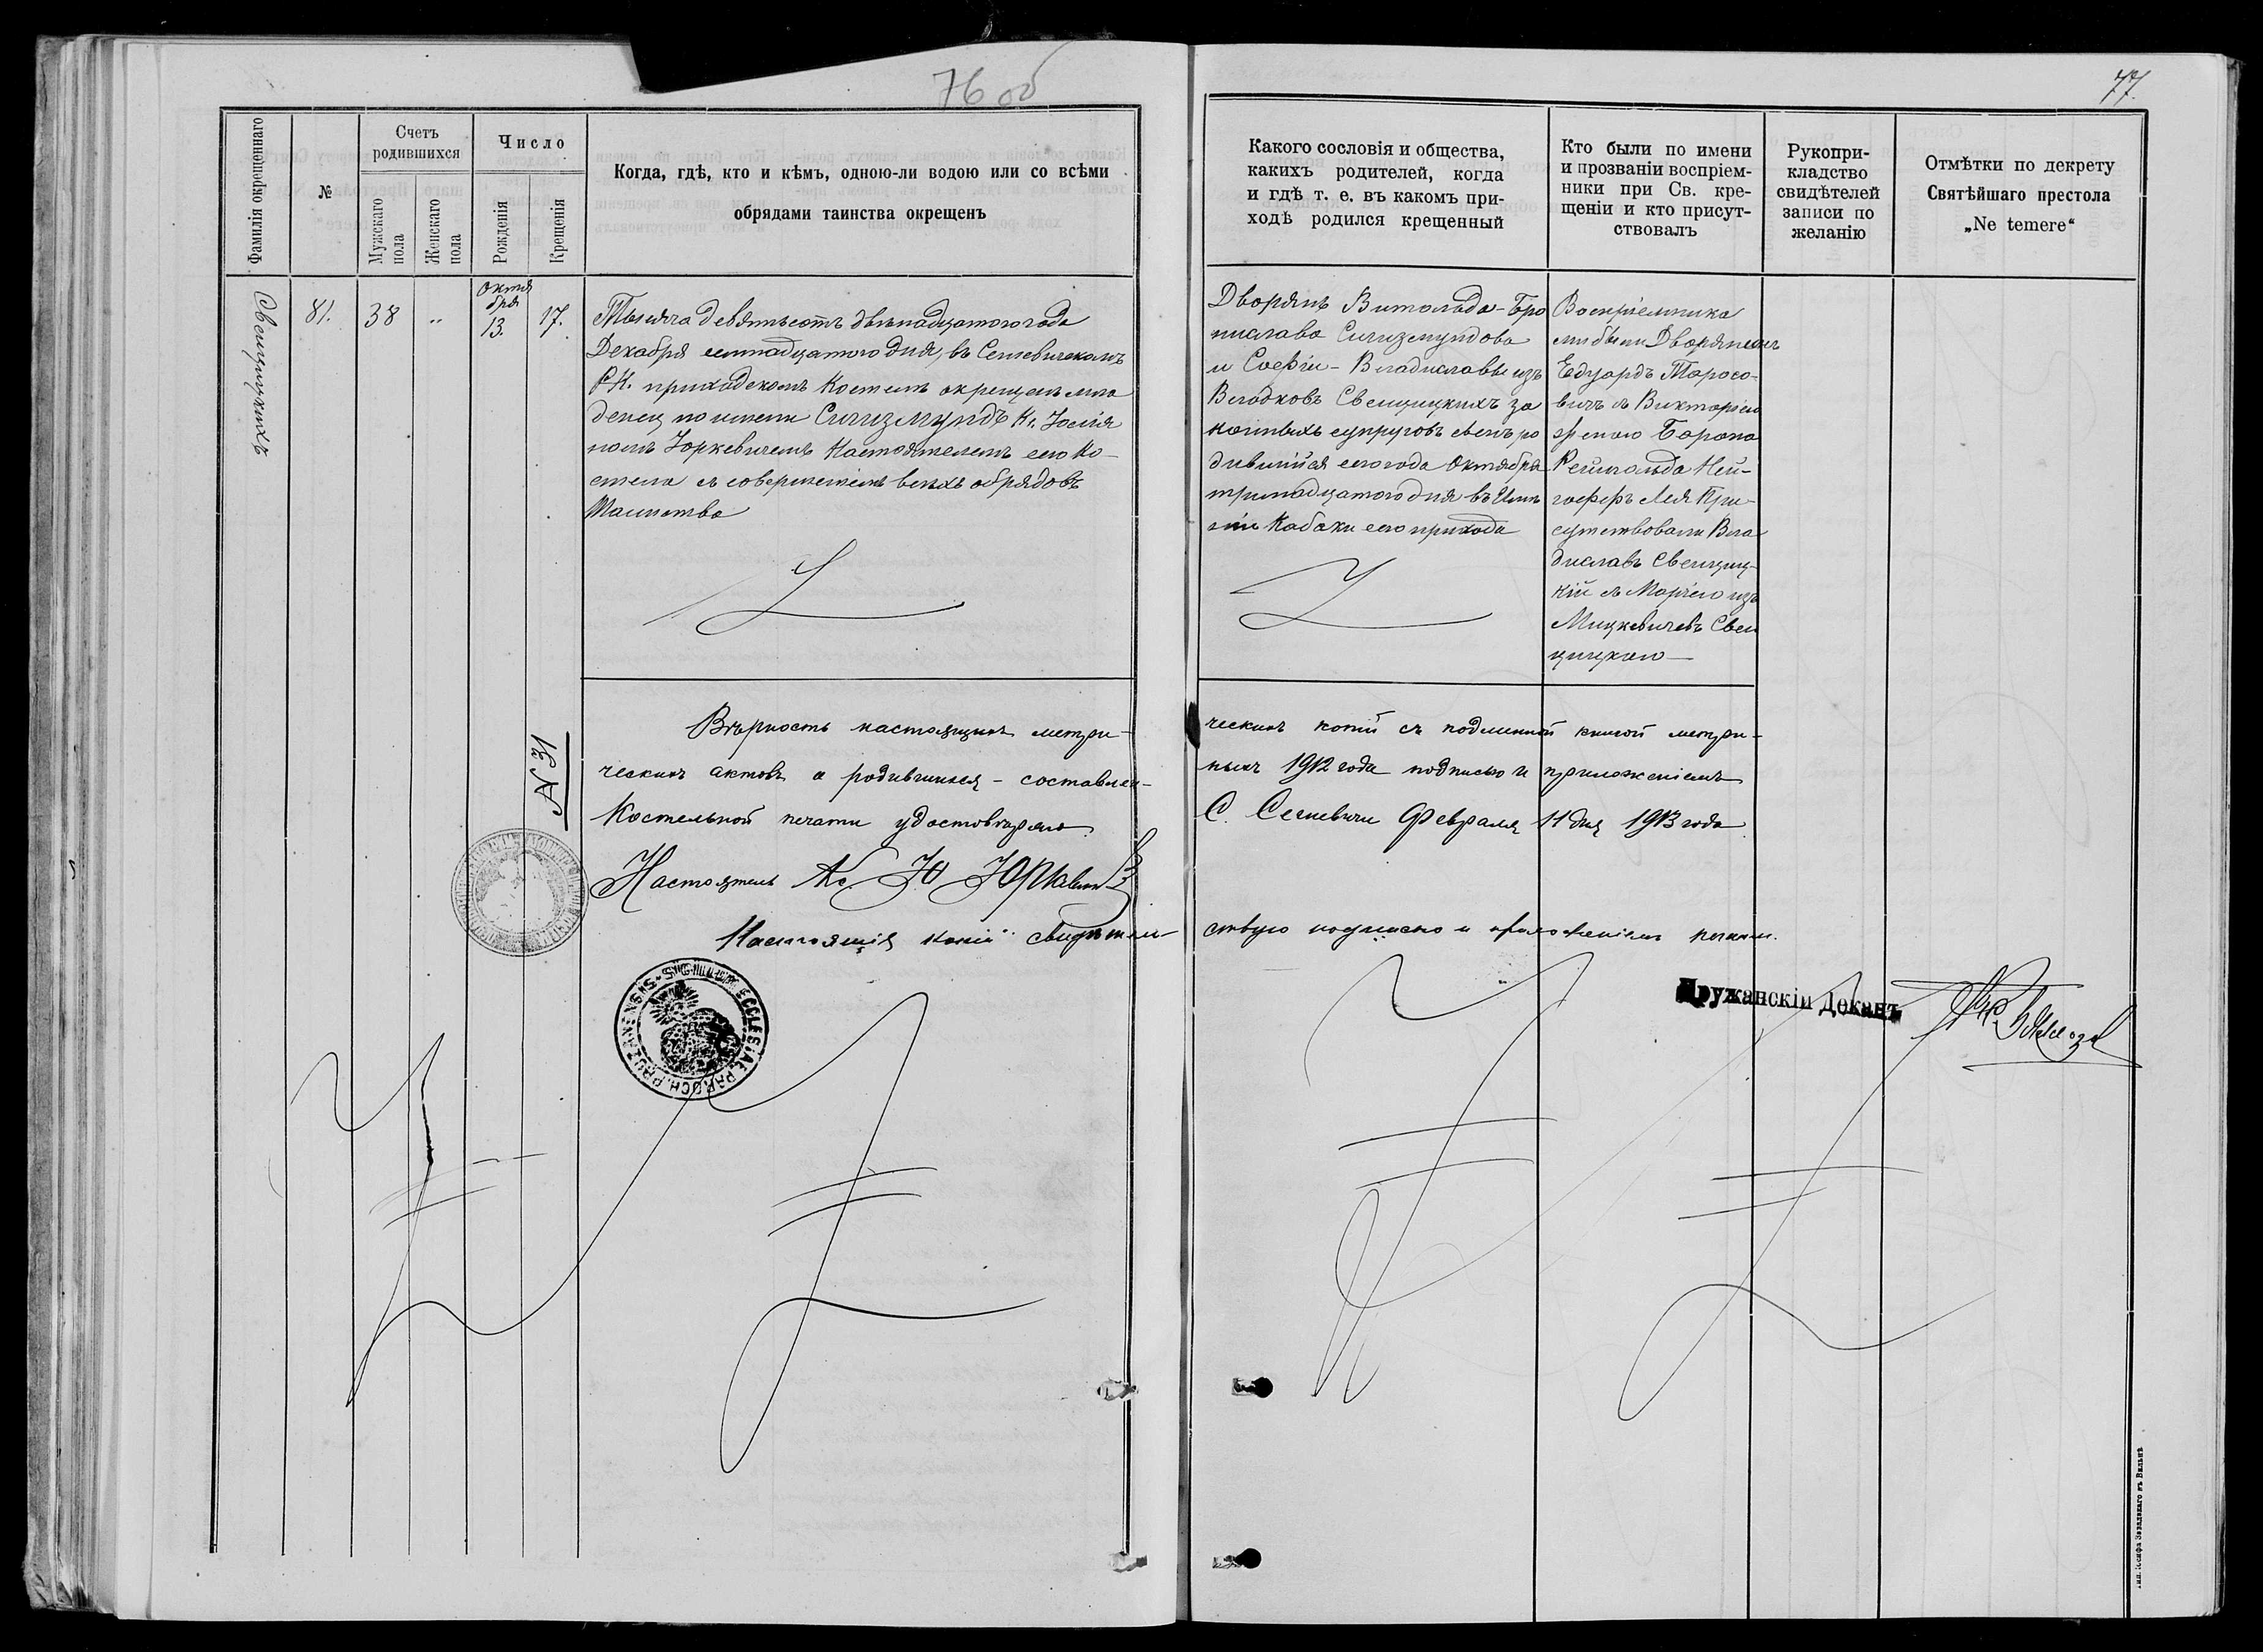 76 об
77.
Фамилія окрещеннаго
№
Счетъ
родившихся
Мужскаго
пола
Женскаго
пола
Число
Рожденія
Крещенія
Когда, гдѣ, кто и кѣмъ, одною-ли водою или со всѣми
обрядами таинства окрещенъ
Какого сословія и общества,
какихъ родителей, когда
и гдѣ т. е. въ какомъ при-
ходѣ родился крещенный
Кто были по имени
и прозваніи воспріем-
ники при Св. кре-
щеніи и кто присут-
ствовалъ
Рукопри-
кладство
свидѣтелей
записи по
желанію
Отмѣтки по декрету
Святѣйшаго престола
„Ne temere“
Свенцицкихъ
81.
38
"
октя
бря
13.
17.
Тысяча девятьсотъ двѣнадцатого года
Декабря семнадцатого дня, въ Сегневичскомъ
Р.К. приходскомъ Костелѣ окрещенъ мла
денец по имени Сигизмундъ Кс. Юстія
номъ Юркевичемъ Настоятелемъ сего Ко-
стела съ совершеніемъ всѣхъ обрядовъ
Таинства
Дворянъ Витольда-Бро
нислава Сигизмундова
и Софіи-Владиславы изъ
Влодковъ Свенцицкихъ за
конныхъ супруговъ сынъ ро
дившійся сего года Октября
тринадцатого дня въ Имѣ
ніи Кабаки сего прихода
Воспріемника
ми были Дворянинъ
Едуардъ Тарасо-
вичъ съ Викторіею
женою Барона
Рейнольда Ней-
гофъ Лея При-
сутствовали Вла
диславъ Свенциц-
кій съ Маріею изъ
Мицкевичевъ Свен
цицкою
№ 31
Вѣрность настоящихъ метри-
ческихъ копій съ подлинной книгой метри-
ческихъ актовъ о родившихся - составлен-
ныхъ 1912 года подписью и приложеніемъ
Костельной печати удостовѣряю.
С. Сегневичи Февраля 11 дня 1913 года
Настоятель Кс. Ю Юркевичъ
Настоящія копіи свидѣтель-
ствую подписью и приложеніемъ печати.
SIGILLUM ECCLESIAE PAROCH. PRUZANENSIS
Пружанскій Деканъ
Тип. Іосифа Завадзкаго въ Вильнѣ